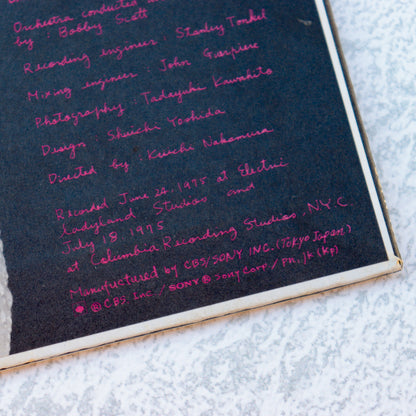 Orchestra conducted
by Bobby Scott
Recording engineer Stanley Tonkel
Mixing engineer John Guerriere
Photography Tadayuki Kawahito
Design Shuichi Yoshida
Directed by Kiichi Nakamura
Recorded June 24, 1975 at Electric
Ladyland Studios and
July 18 1975
at Columbia Recording Studios, N.Y.C.
Manufactured by CBS/SONY INC. (Tokyo Japan)
® CBS. Inc. / SONY ® Sony Corp. / PR. JK (KP)